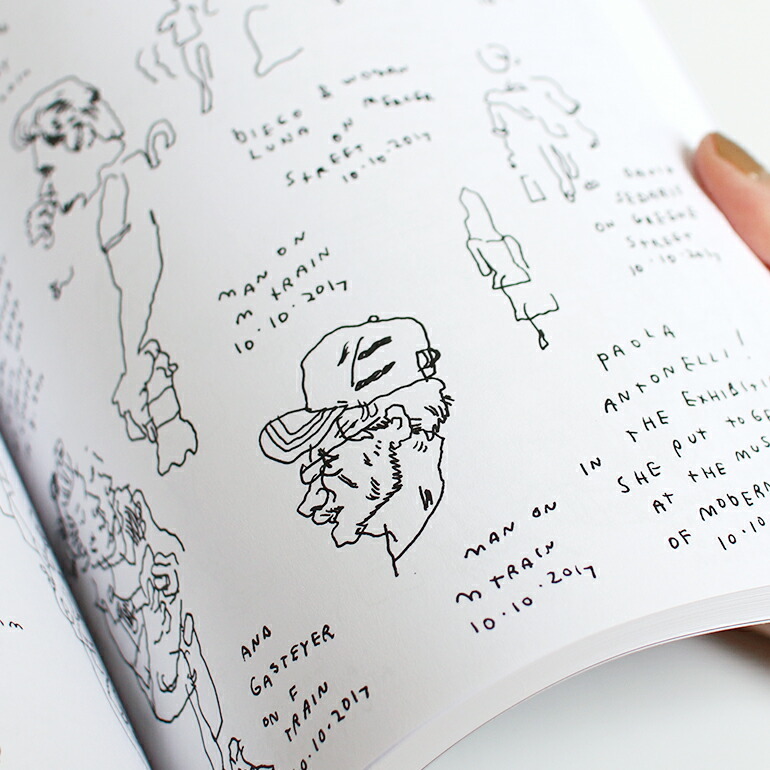 DIEGO & WOMAN
LUNA ON MERCER
STREET
10.10.2017
SEDARIS
ON GREENE
STREET
10.10.2017
MAN ON
M TRAIN
10.10.2017
PAOLA
ANTONELLI!
IN THE EXHIBITI
SHE PUT TOGE
AT THE MUS
OF MODERN
10.10
MAN ON
M TRAIN
10.10.2017
ANA
GASTEYER
ON F
TRAIN
10.10.2017